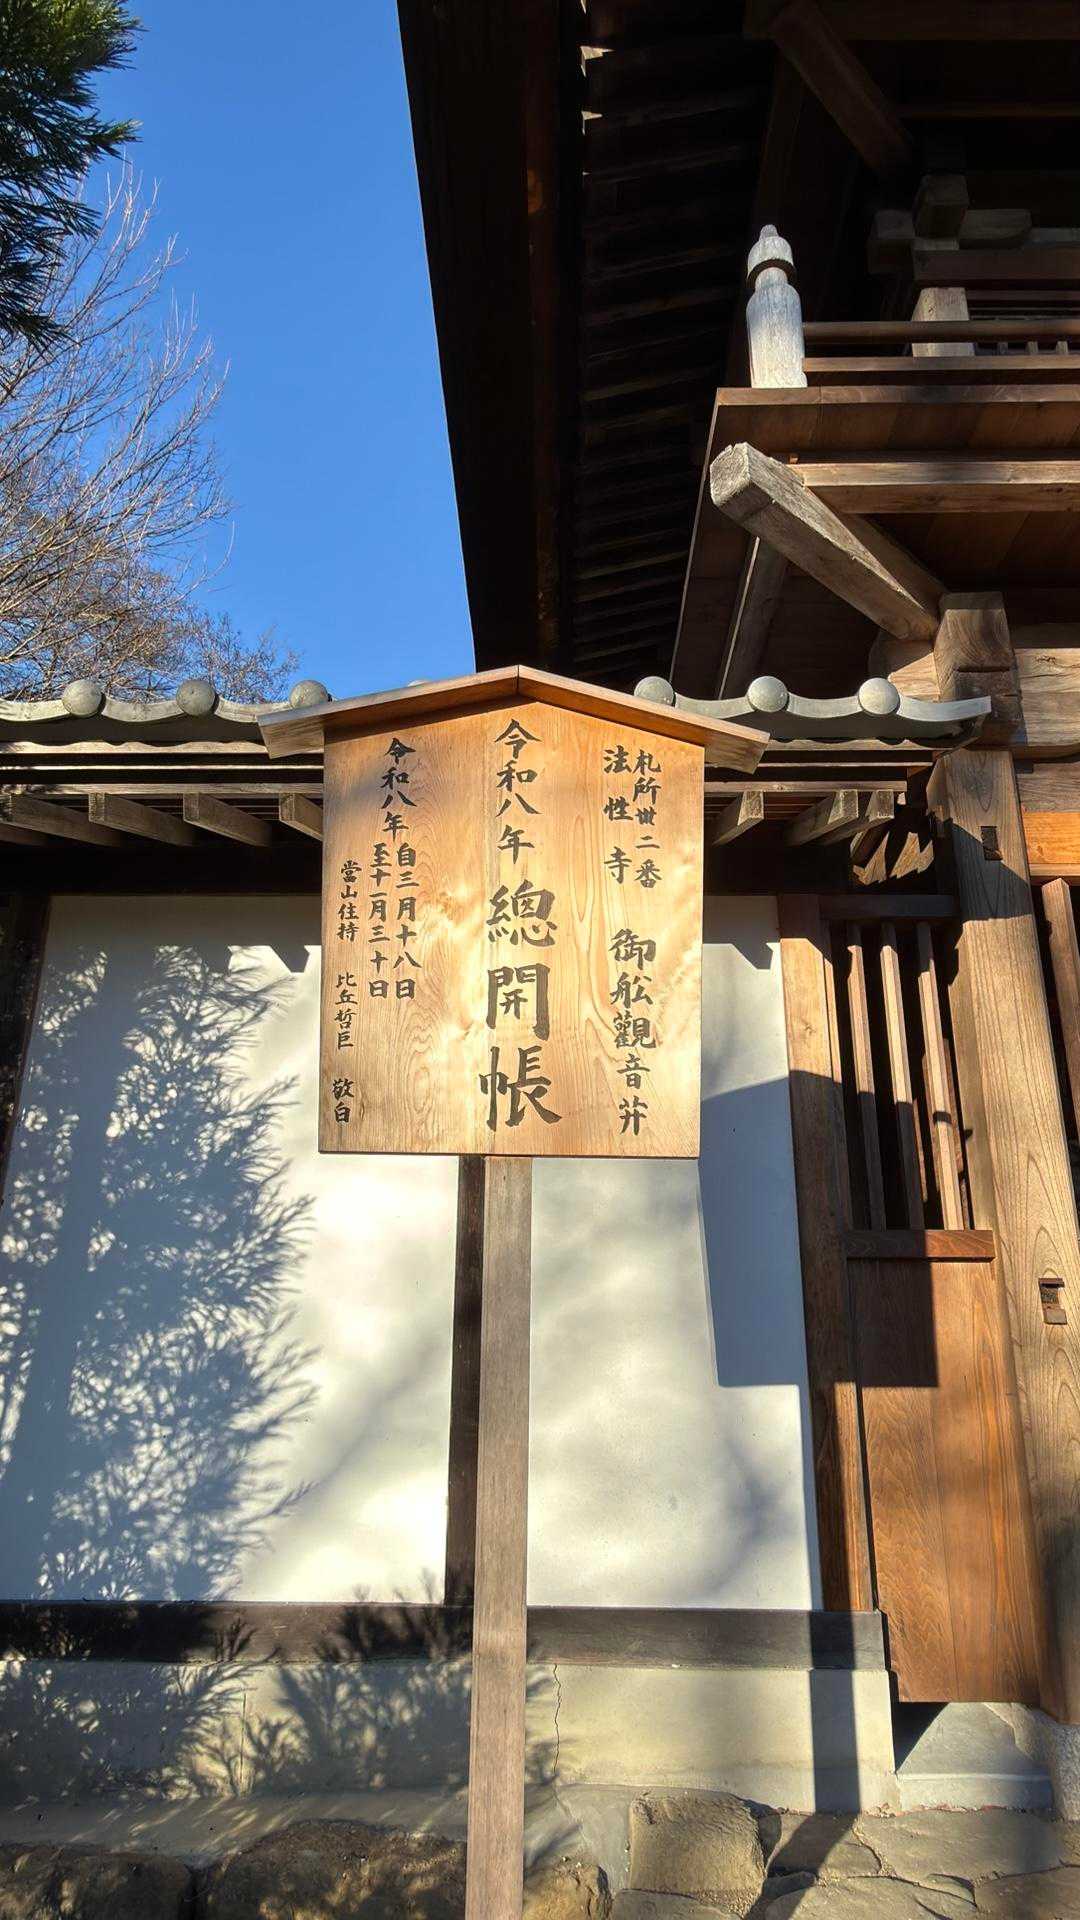 札所丗二番
法性寺
御舩觀音䒑
令和八年 總開帳
令和八年
自三月十八日
至十一月三十日
當山住持 比丘哲巨 敬白